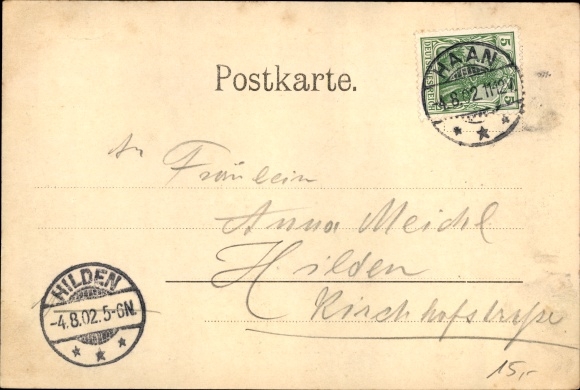 Postkarte.
5 5
DEUTSCHES REICH
HAAN
-4.8.02.11-12V.
An
Fräulein
Anna Meichl
Hilden
Kirchhofstraße
HILDEN
-4.8.02.5-6N.
15,-